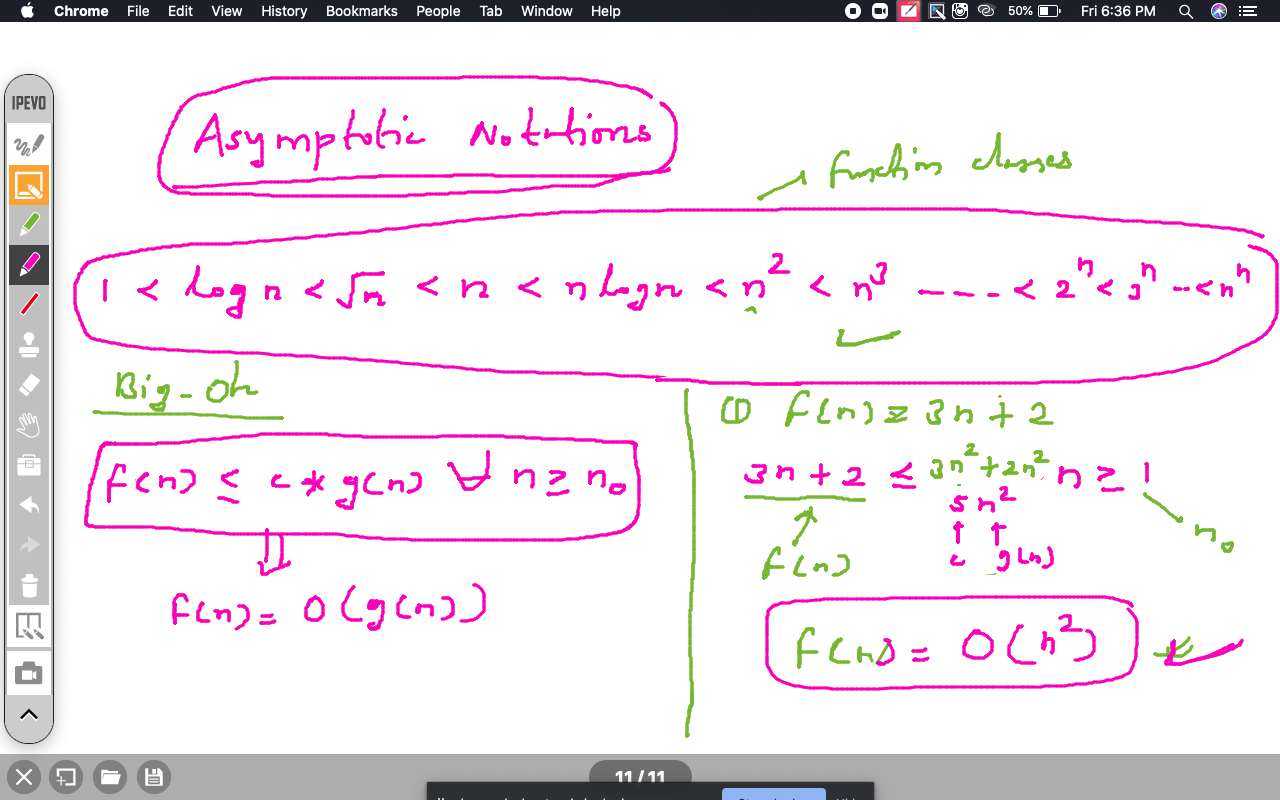 Chrome File Edit View History Bookmarks People Tab Window Help 50% Fri 6:36 PM
IPEVO
Asymptotic Notations
function classes
1 < log n < √n < n < n log n < n² < n³ ---- < 2ⁿ < 3ⁿ -- < nⁿ
Big-Oh
f(n) ≤ c * g(n) ∀ n ≥ n₀
f(n) = O(g(n))
① f(n) = 3n + 2
3n + 2 ≤ 3n² + 2n² n ≥ 1
5n²
n₀
c g(n)
f(n)
f(n) = O(n²)
11 / 11